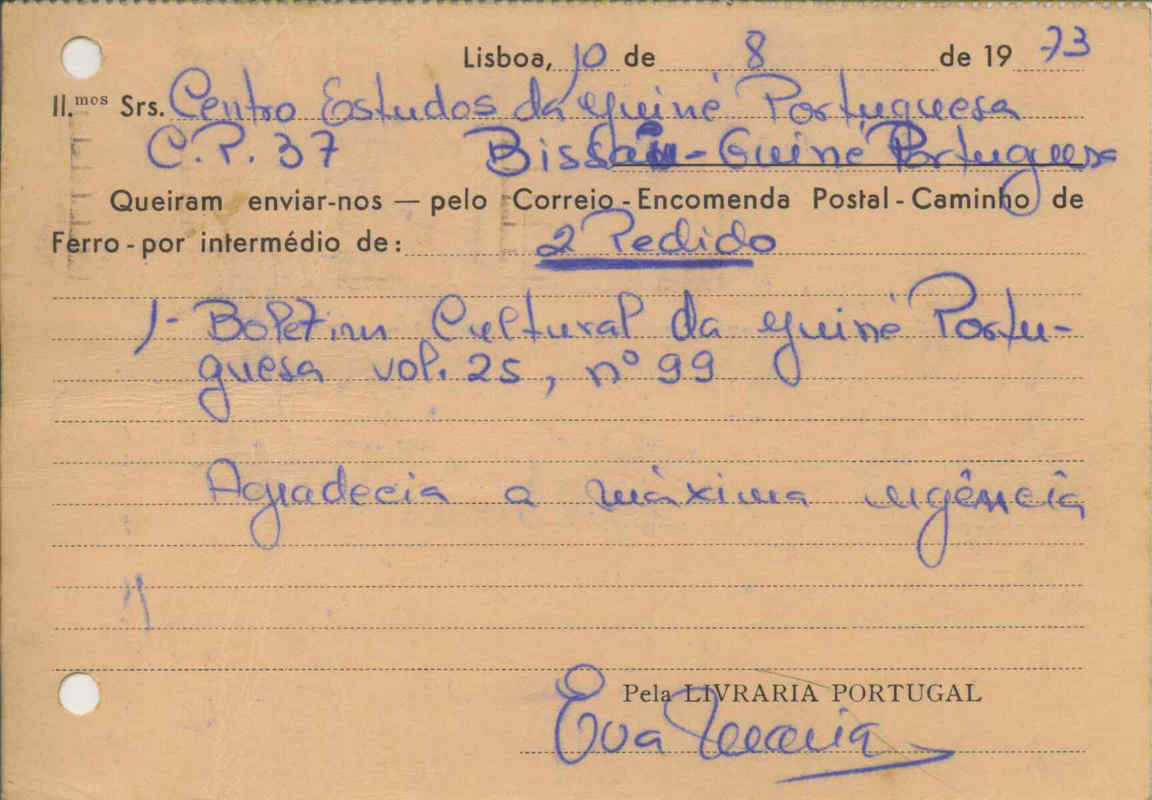 Lisboa, 10 de 8 de 1973
Il.mos Srs. Centro Estudos da Guiné Portuguesa
C.P. 37 Bissau - Guiné Portuguesa
Queiram enviar-nos — pelo Correio - Encomenda Postal - Caminho de
Ferro - por intermédio de: 2 Pedido
1- Boletim Cultural da Guiné Portu-
guesa vol. 25, nº 99
Agradecia a máxima urgência
Pela LIVRARIA PORTUGAL
Eva Maria